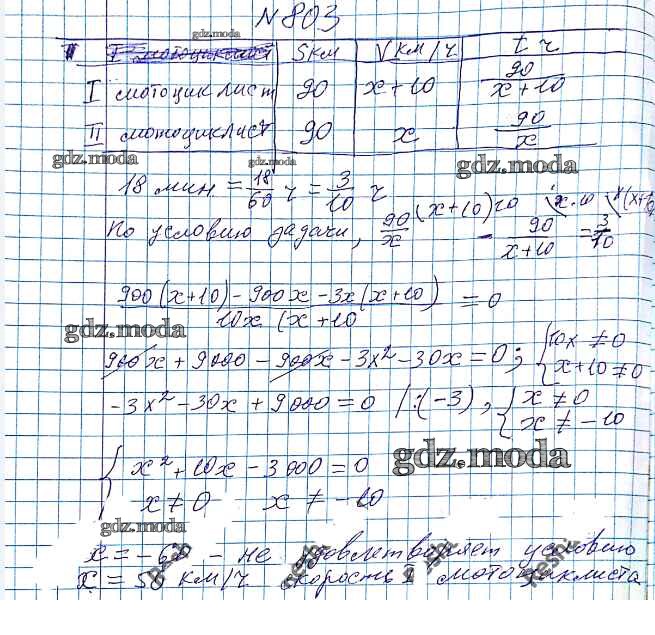 № 803
gdz.moda
S км V км/ч t ч
I мотоциклист 90 x+10 90/(x+10)
II мотоциклист 90 x 90/x
gdz.moda gdz.moda gdz.moda
18 мин = 18/60 ч = 3/10 ч
По условию задачи, 90/x (x+10)10 - 90/(x+10) = 3/10
(900(x+10)-900x-3x(x+10))/(10x(x+10) = 0
gdz.moda
900x + 9000 - 900x - 3x² - 30x = 0; { 10x ≠ 0
x+10 ≠ 0
-3x² - 30x + 9000 = 0 /:(-3), { x ≠ 0
x ≠ -10
{ x² + 10x - 3000 = 0
gdz.moda
x ≠ 0 x ≠ -10
gdz.moda
x = -60 - не удовлетворяет условию
x = 50 км/ч скорость II мотоциклиста